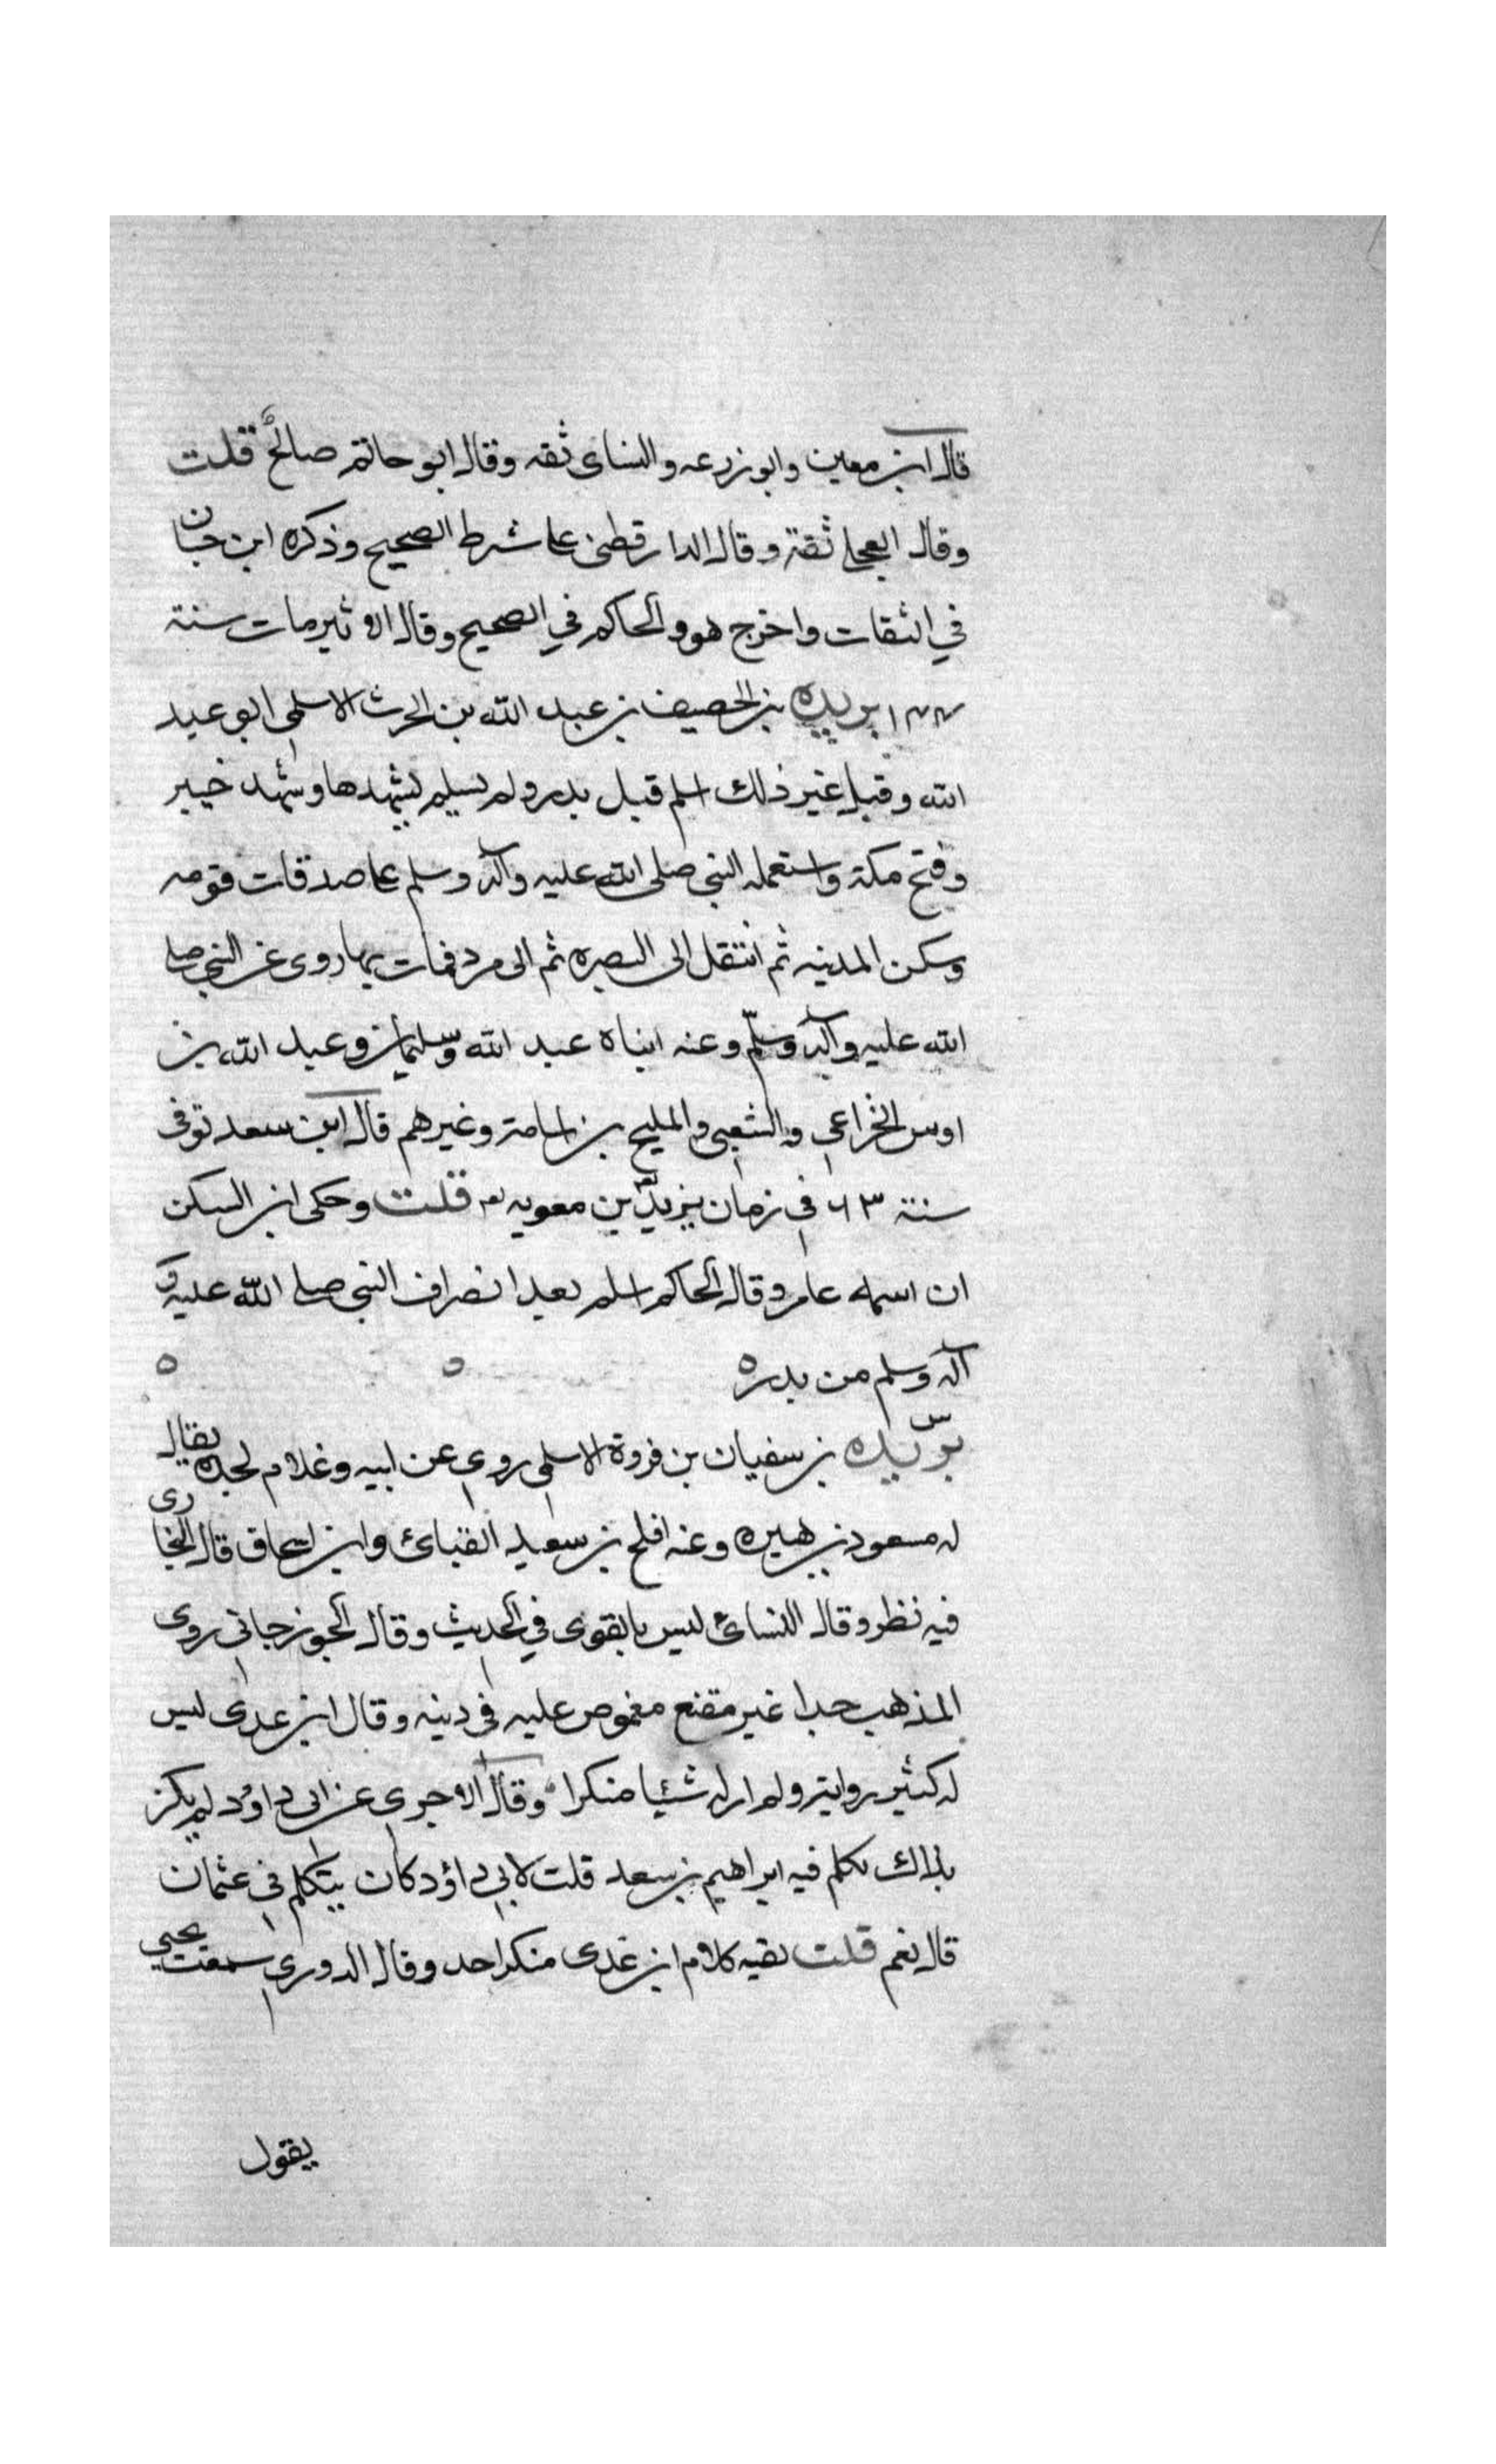 قال ابن معين وابو زرعه والنساى ثقه وقال ابو حاتم صالح قلت
وقال العجلى ثقة وقال الدارقطنى على شرط الصحيح وذكره ابن حبان
في الثقات واخرج هو والحاكم في الصحيح وقال الاثير مات سنة
١٤٤ بريده بن الحصيف بن عبد الله بن الحرث الاسلمى ابو عبد
الله وقيل غير ذلك اسلم قبل بدر ولم يسلم يشهدها وشهد خيبر
وفتح مكة واستعمله النبى صلى الله عليه وآله وسلم على صدقات قومه
وسكن المدينه ثم انتقل الى البصره ثم الى مرو فمات بها روى عن النبى صلى
الله عليه وآله وسلّم وعنه ابناه عبد الله وسليمان وعبد الله بن
اوس الخزاعي والشعبى والمليح بن اسامة وغيرهم قال ابن سعد توفى
سنة ٦٣ في زمان يزيد بن معويه قلت وحكى ابن السكن
ان اسمه عامر وقال الحاكم اسلم بعد انصراف النبى صلى الله عليه و
آله وسلم من بدر ه ه ه
س
بريده بن سفيان بن فروة الاسلمى روى عن ابيه وغلام لجده يقال
له مسعود بن هبيره وعنه افلح بن سعيد القبائ وابن اسحاق قال البخارى
فيه نظر وقال النسائ ليس بالقوى في الحديث وقال الجوزجانى روى
المذهب جدا غير مقنع مغموص عليه فى دينه وقال ابن عدى ليس
له كثير رواية ولم ار له شئيا منكرا وقال الاجرى عن ابى داؤد لم يكن
بذاك تكلم فيه ابراهيم بن سعد قلت لابى داؤد كان يتكلم في عثمان
قال نعم قلت بقيه كلام ابن عدى منكرا جدا وقال الدورى سمعت يحيى
يقول